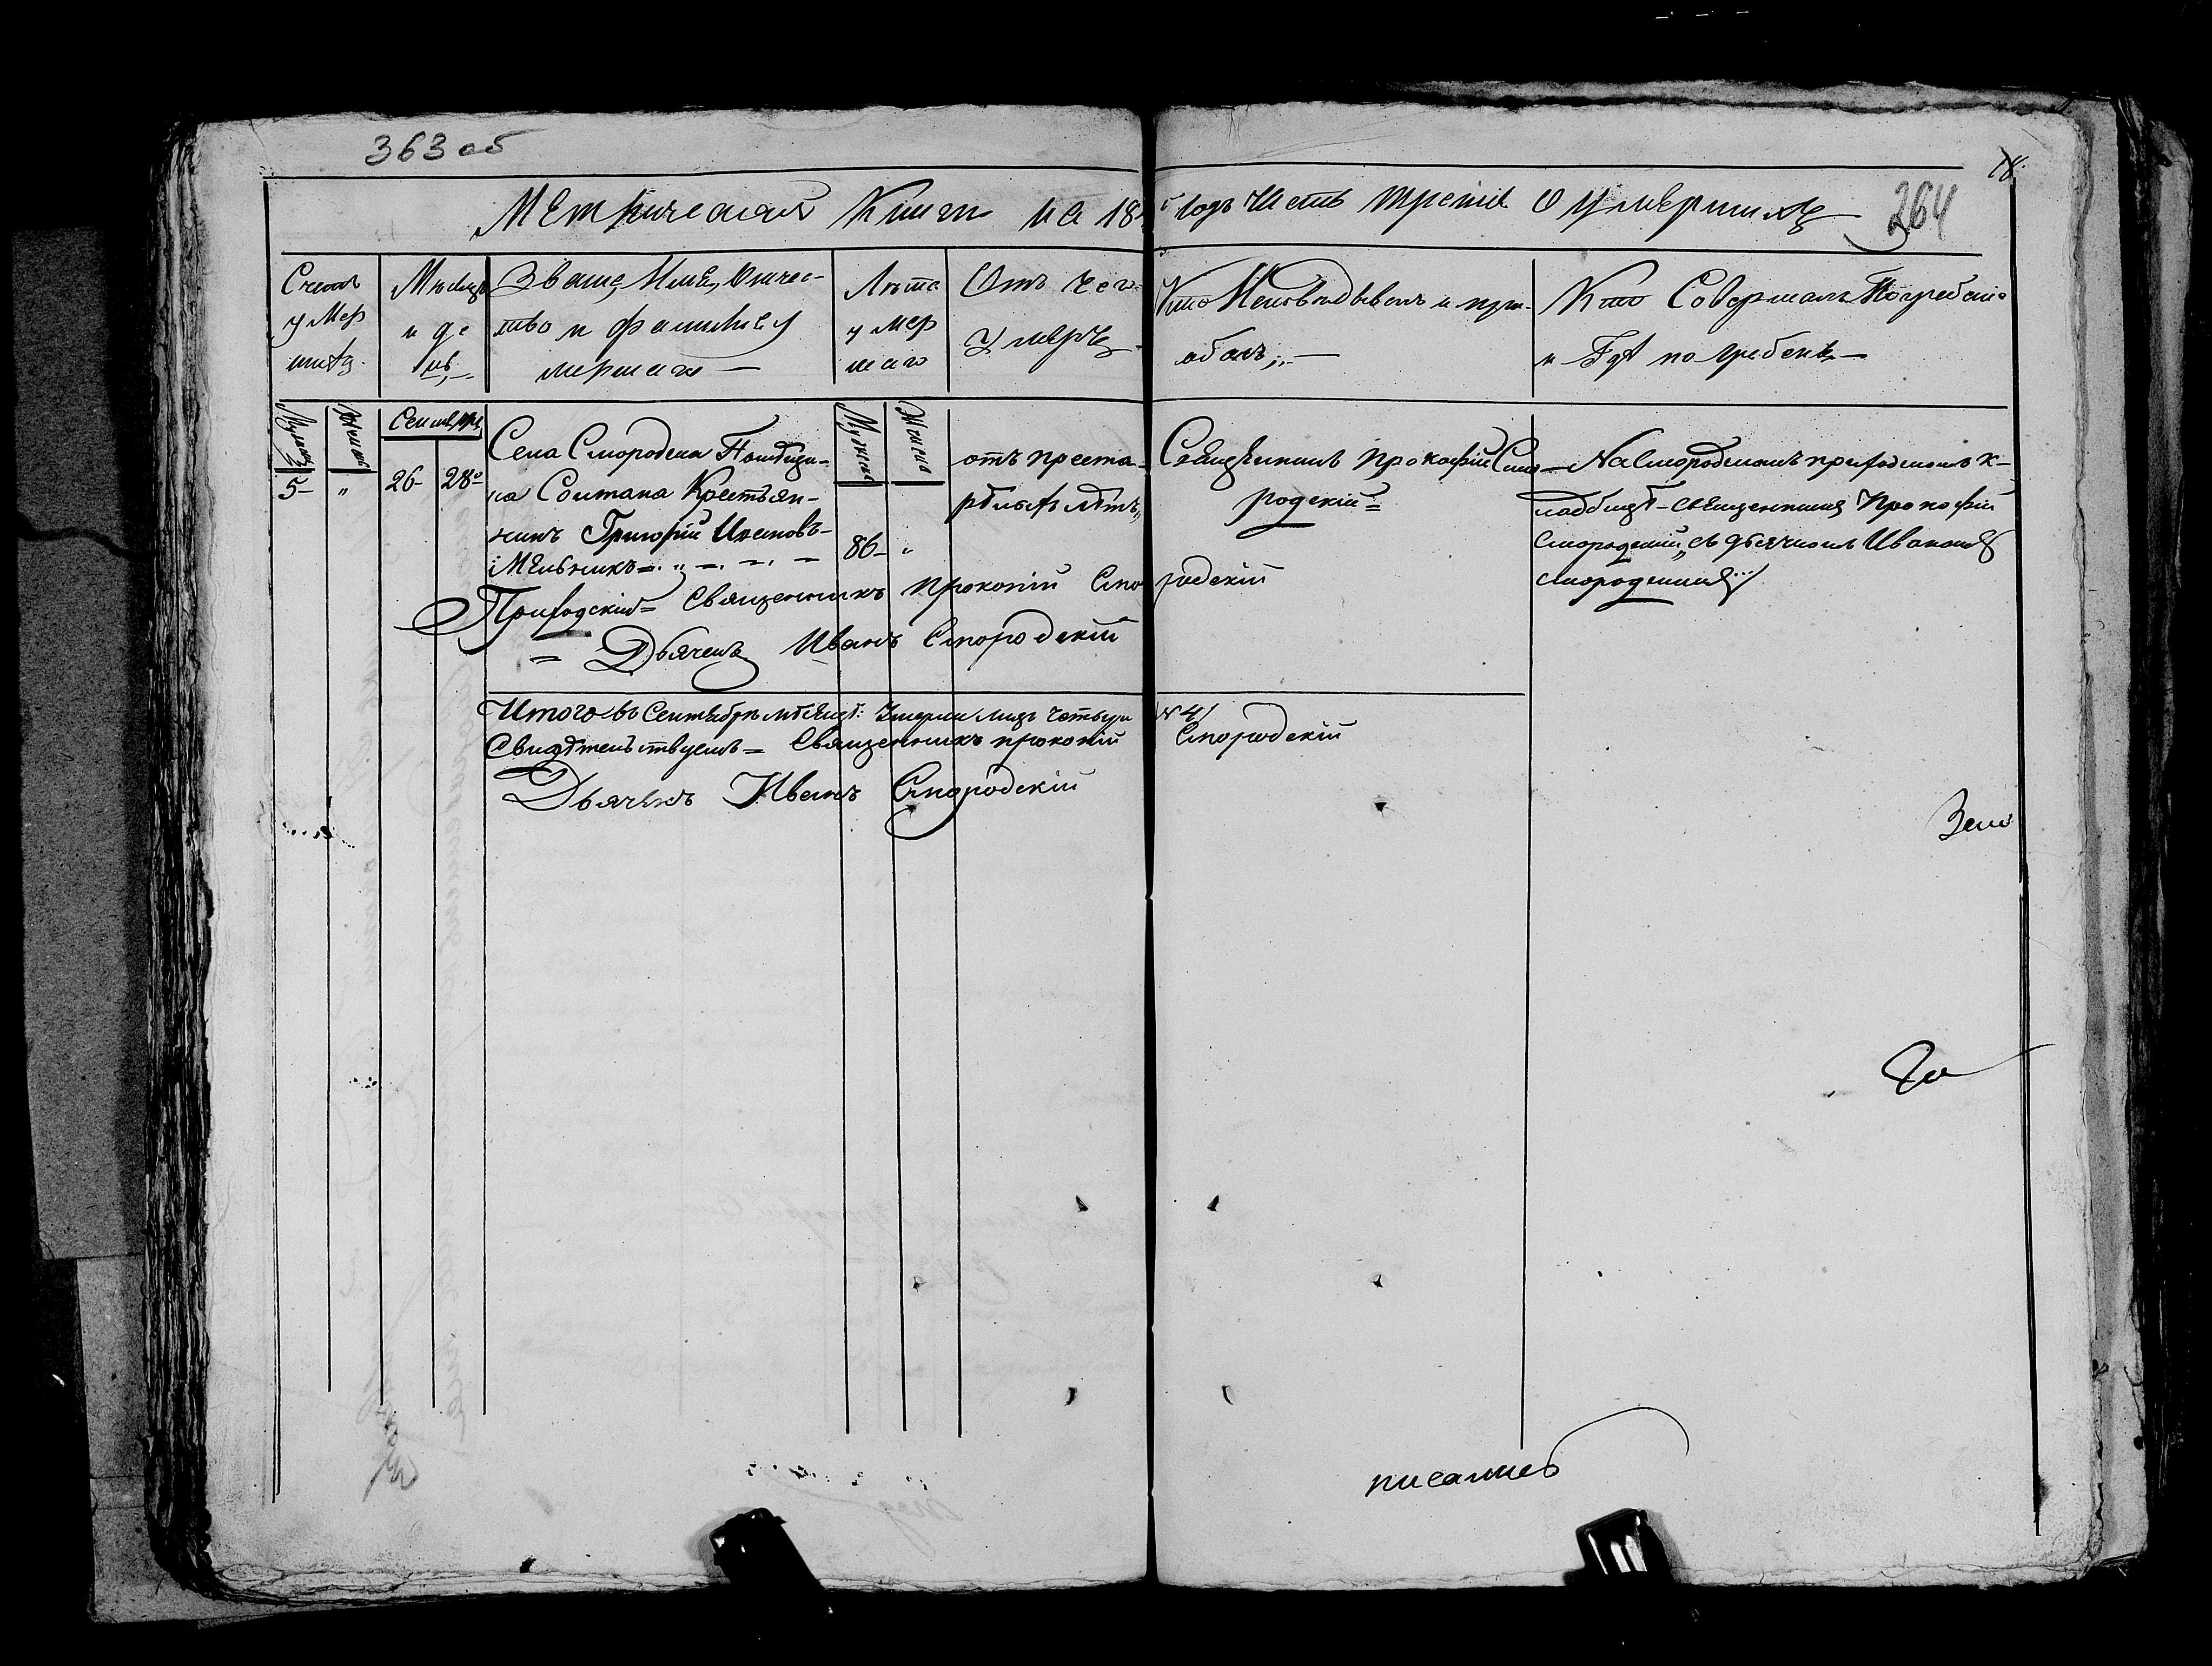 363 об
18
364
Метрическая Книга на 18 годъ Часть третія О умершихъ
Счетъ умершихъ.
Мѣсяцъ и день
Званіе, Имя, Отчество и фамилія умершаго —
Лѣта умершаго
Отъ чего умеръ
Кто Исповѣдывалъ и пріобщалъ
Кто Совершалъ Погребеніе и Гдѣ погребенъ —
Мужеск
Женск
Сентябрь
Мужеска
Женска
5 — „ 26 — 28
Села Смородена Помѣщи-
ка Солтана Крестьян-
нинъ Григорій
Мельникъ =
86 — „
отъ преста-
рѣлыхъ лѣтъ
Священникъ Прокофій Смо-
родскій =
На Смородскомъ приходскомъ к-
ладбищѣ — священникъ Прокофій
Смородскій, съ дьячкомъ Иваномъ
Смородскимъ
Приходскій = Священникъ Прокопій Смородскій
= Дьячекъ Иванъ Смородскій
Итого въ Сентябрѣ мѣсяцѣ: Умерли лицъ четыре № 4/
Свидѣтельствуемъ = Священникъ Прокопій Смородскій
Дьячекъ Иванъ Смородскій